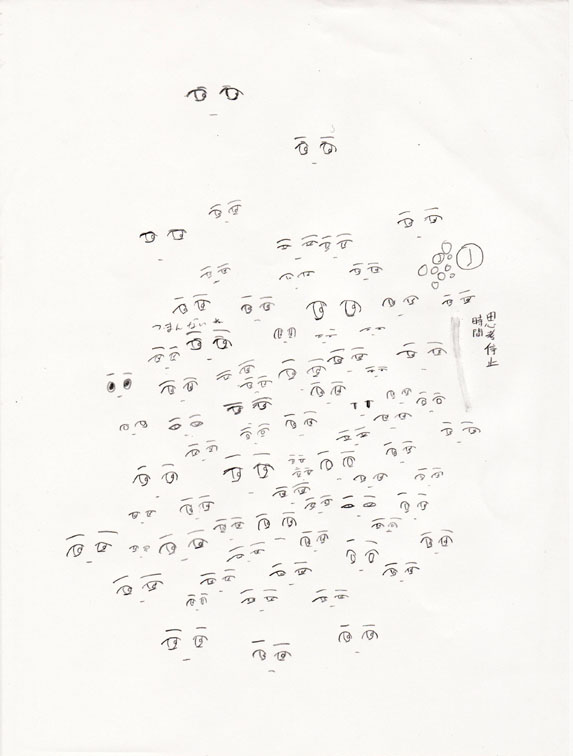 つまんないね
思考停止
時間